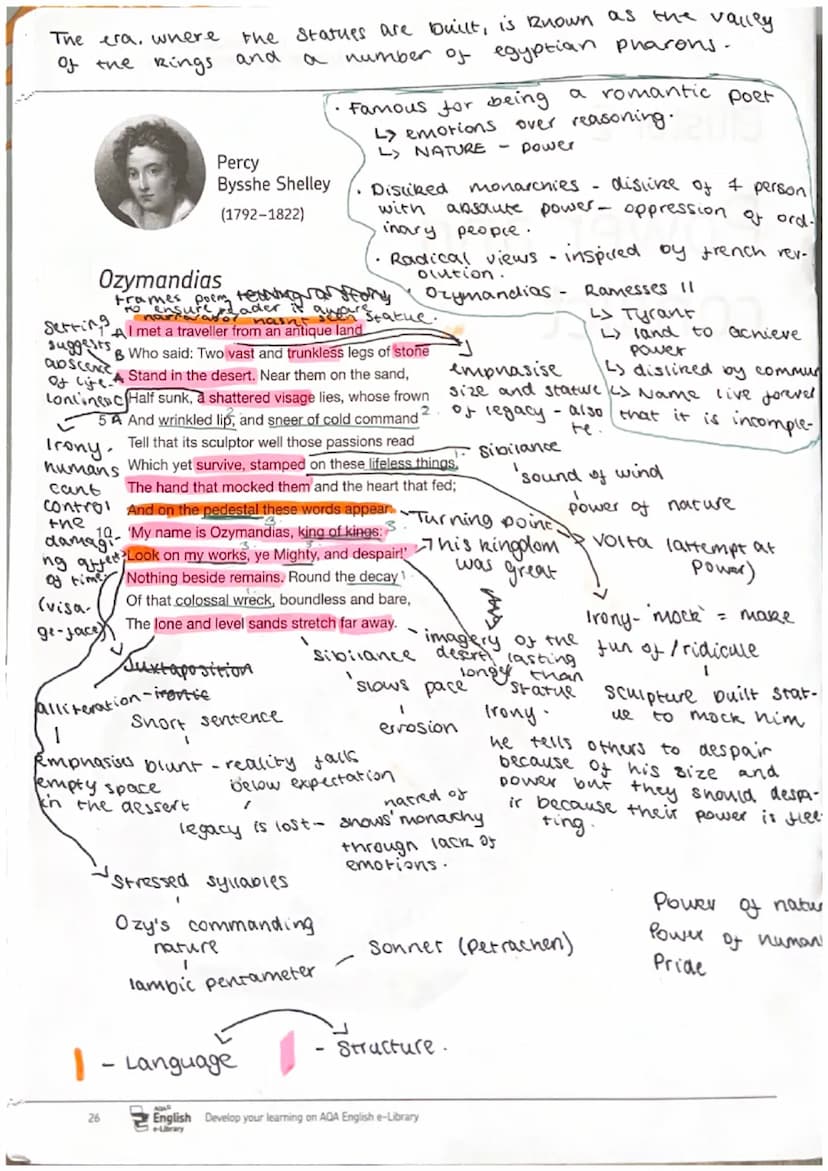 The era, where the statues are built, is known as the valley
of the kings and a number of egyptian pharons.
• Famous for being a romantic poet
↳ emotions over reasoning.
↳ NATURE - power
• Disliked monarchies - dislike of 1 person
with absolute power - oppression of ord-
inary people.
• Radical views - inspired by french rev-
olution.
• Ozymandias - Ramesses II
↳ Tyrant
↳ land to achieve
power
↳ disliked by commun
↳ Name live forever
that it is incomple-
te.
Percy
Bysshe Shelley
(1792–1822)
Ozymandias
frames poem
to ensure reader is aware
narrarator hasn't seen statue.
setting
suggests
abscence
of life-
lonliness
A I met a traveller from an antique land
B Who said: Two vast and trunkless legs of stone
A Stand in the desert. Near them on the sand,
Half sunk, a shattered visage lies, whose frown
5 A And wrinkled lip, and sneer of cold command
Tell that its sculptor well those passions read
Which yet survive, stamped on these lifeless things,
The hand that mocked them and the heart that fed;
And on the pedestal these words appear:
10 'My name is Ozymandias, king of kings:
Look on my works, ye Mighty, and despair!'
Nothing beside remains. Round the decay
Of that colossal wreck, boundless and bare,
The lone and level sands stretch far away.
emphasise
size and stature
of legacy - also
Irony-
humans
cant
control
the
damagi-
ng affect
of time
(visa-
ge-face)
sibilance
'sound of wind
power of nature
Turning point
volta (attempt at
power)
His kingdom
was great
Irony- 'mock' = make
fun of /ridicule
sculpture built stat-
ue to mock him
imagery of the
desert lasting
longer than
statue
sibilance
'slows pace
errosion
Irony.
he tells others to despair
because of his size and
power but they should despa-
ir because their power is flee-
ting.
Juxtaposition
alliteration - ironic
short sentence
emphasises
empty space
in the dessert
blunt - reality falls
below expectation
legacy is lost - shows
hatred of
monarchy
through lack of
emotions.
Stressed syllables
Ozy's commanding
nature
Iambic pentameter
Sonnet (petrachen)
Power of natur
Power of human
Pride
- Language
- Structure.
26
AQA
English
e-Library
Develop your learning on AQA English e-Library